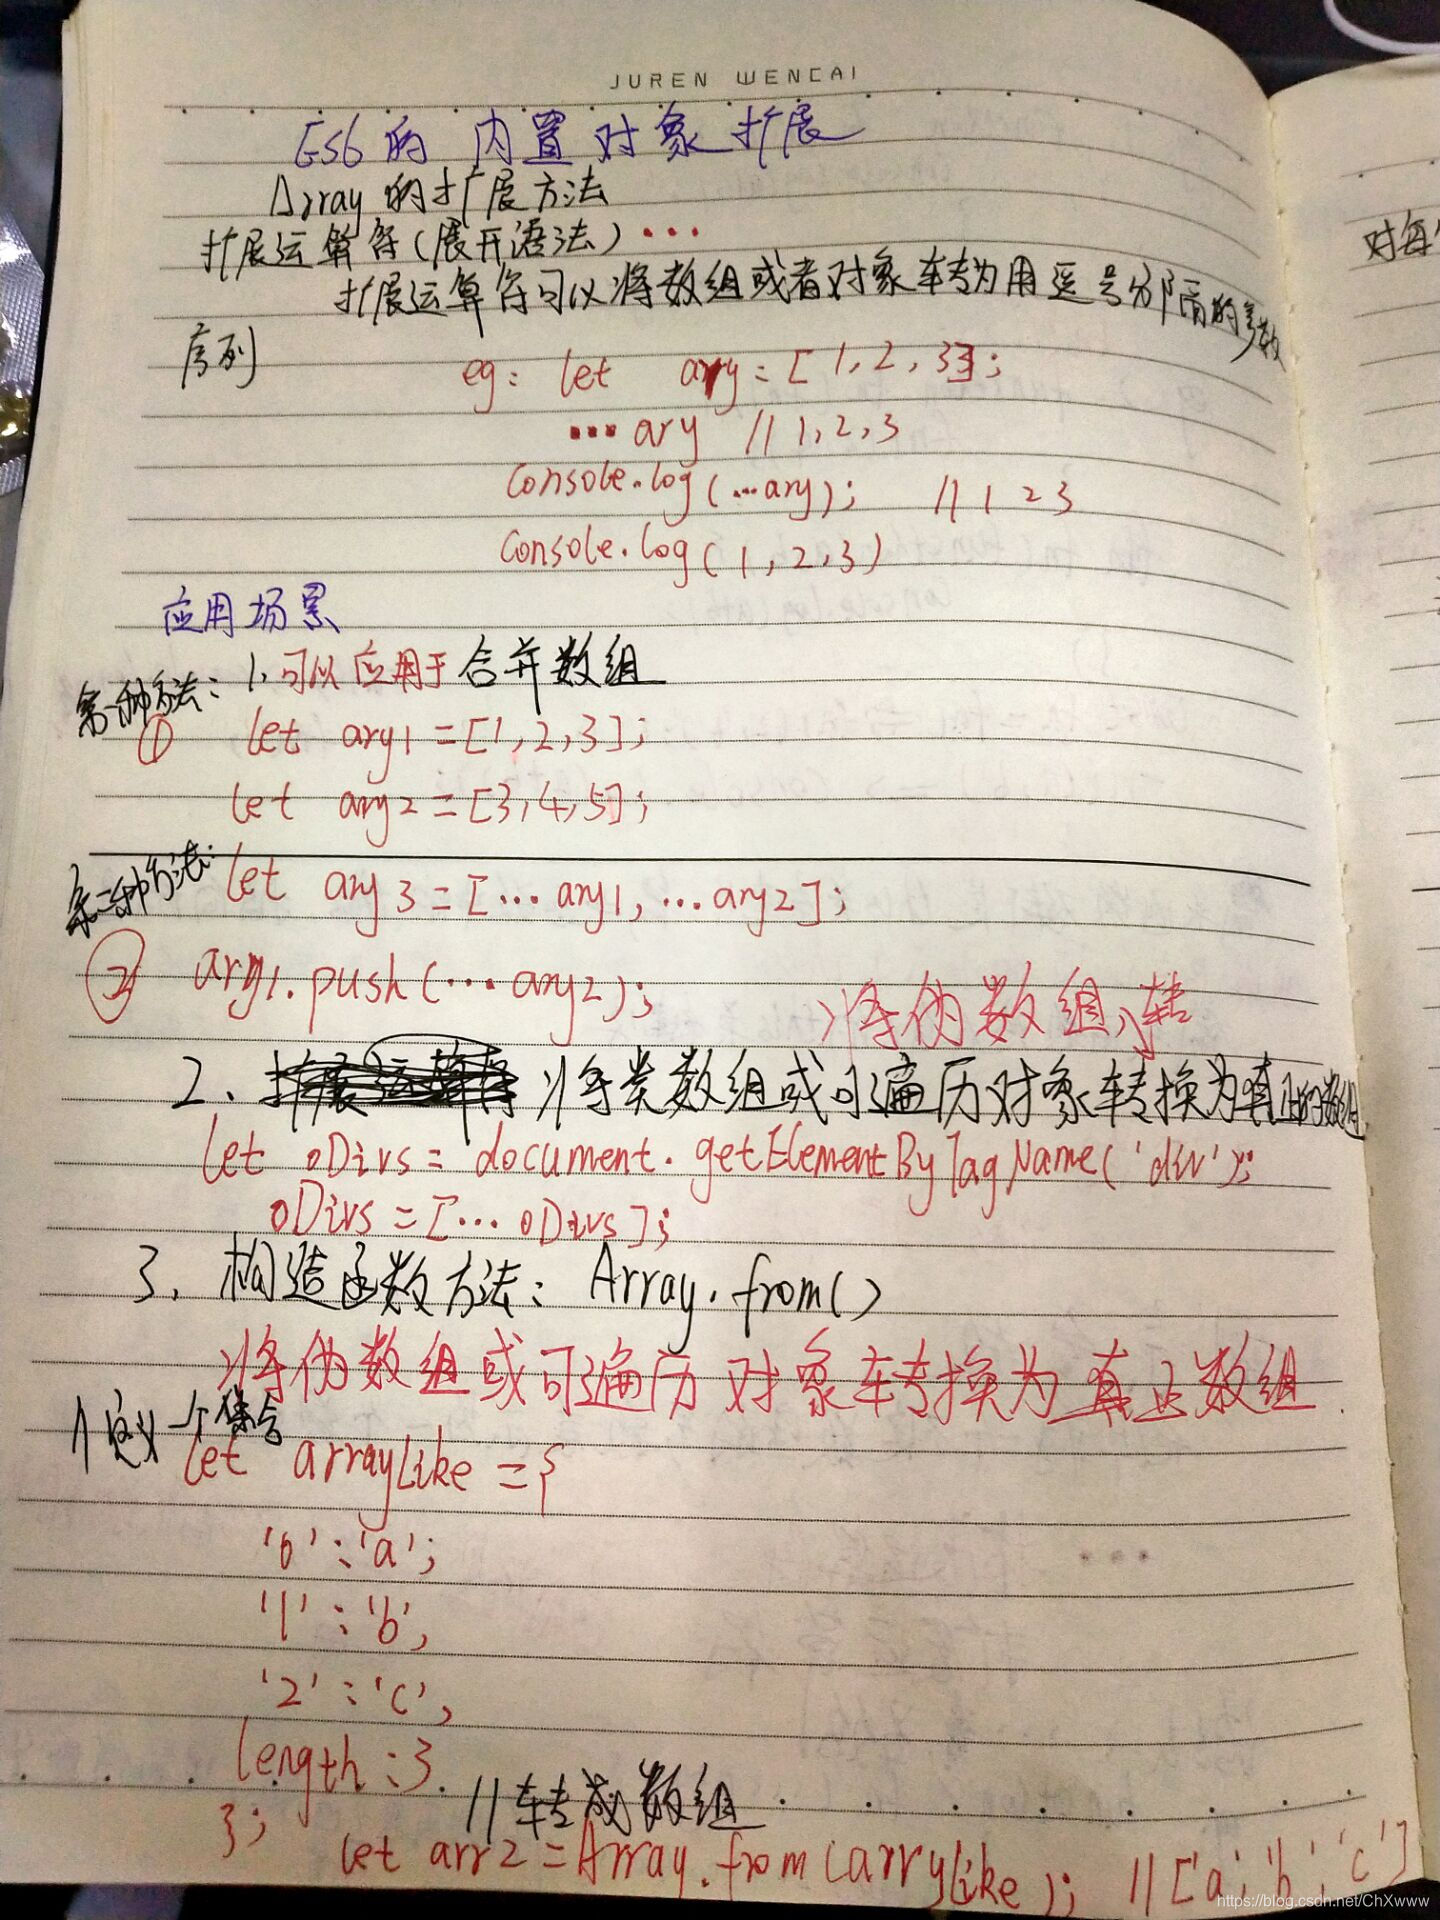 JUREN WENCAI
ES6的 内置对象扩展
Array的扩展方法
扩展运算符(展开语法) ...
扩展运算符可以将数组或者对象转为用逗号分隔的参数
序列
eg: let ary = [1,2,3];
...ary // 1,2,3
Console.log(...ary); // 1 2 3
Console.log(1,2,3)
应用场景
第一种方法: 1. 可以应用于合并数组
① let ary1 = [1,2,3];
let ary2 = [3,4,5];
第二种方法: let ary3 = [...ary1, ...ary2];
② ary1.push(...ary2);
将伪数组转
2、将类数组或可遍历对象转换为真正的数组
let oDivs = document.getElementByTagName('div');
oDivs = [...oDivs];
3、构造函数方法: Array.from()
将伪数组或可遍历对象转换为真正数组
//定义一个集合
let arrayLike = {
'0':'a';
'1':'b',
'2':'c',
length:3
};
//转成数组
let arr2 = Array.from(arryLike); // ['a','b','c']
对每
https://blog.csdn.net/ChXwww